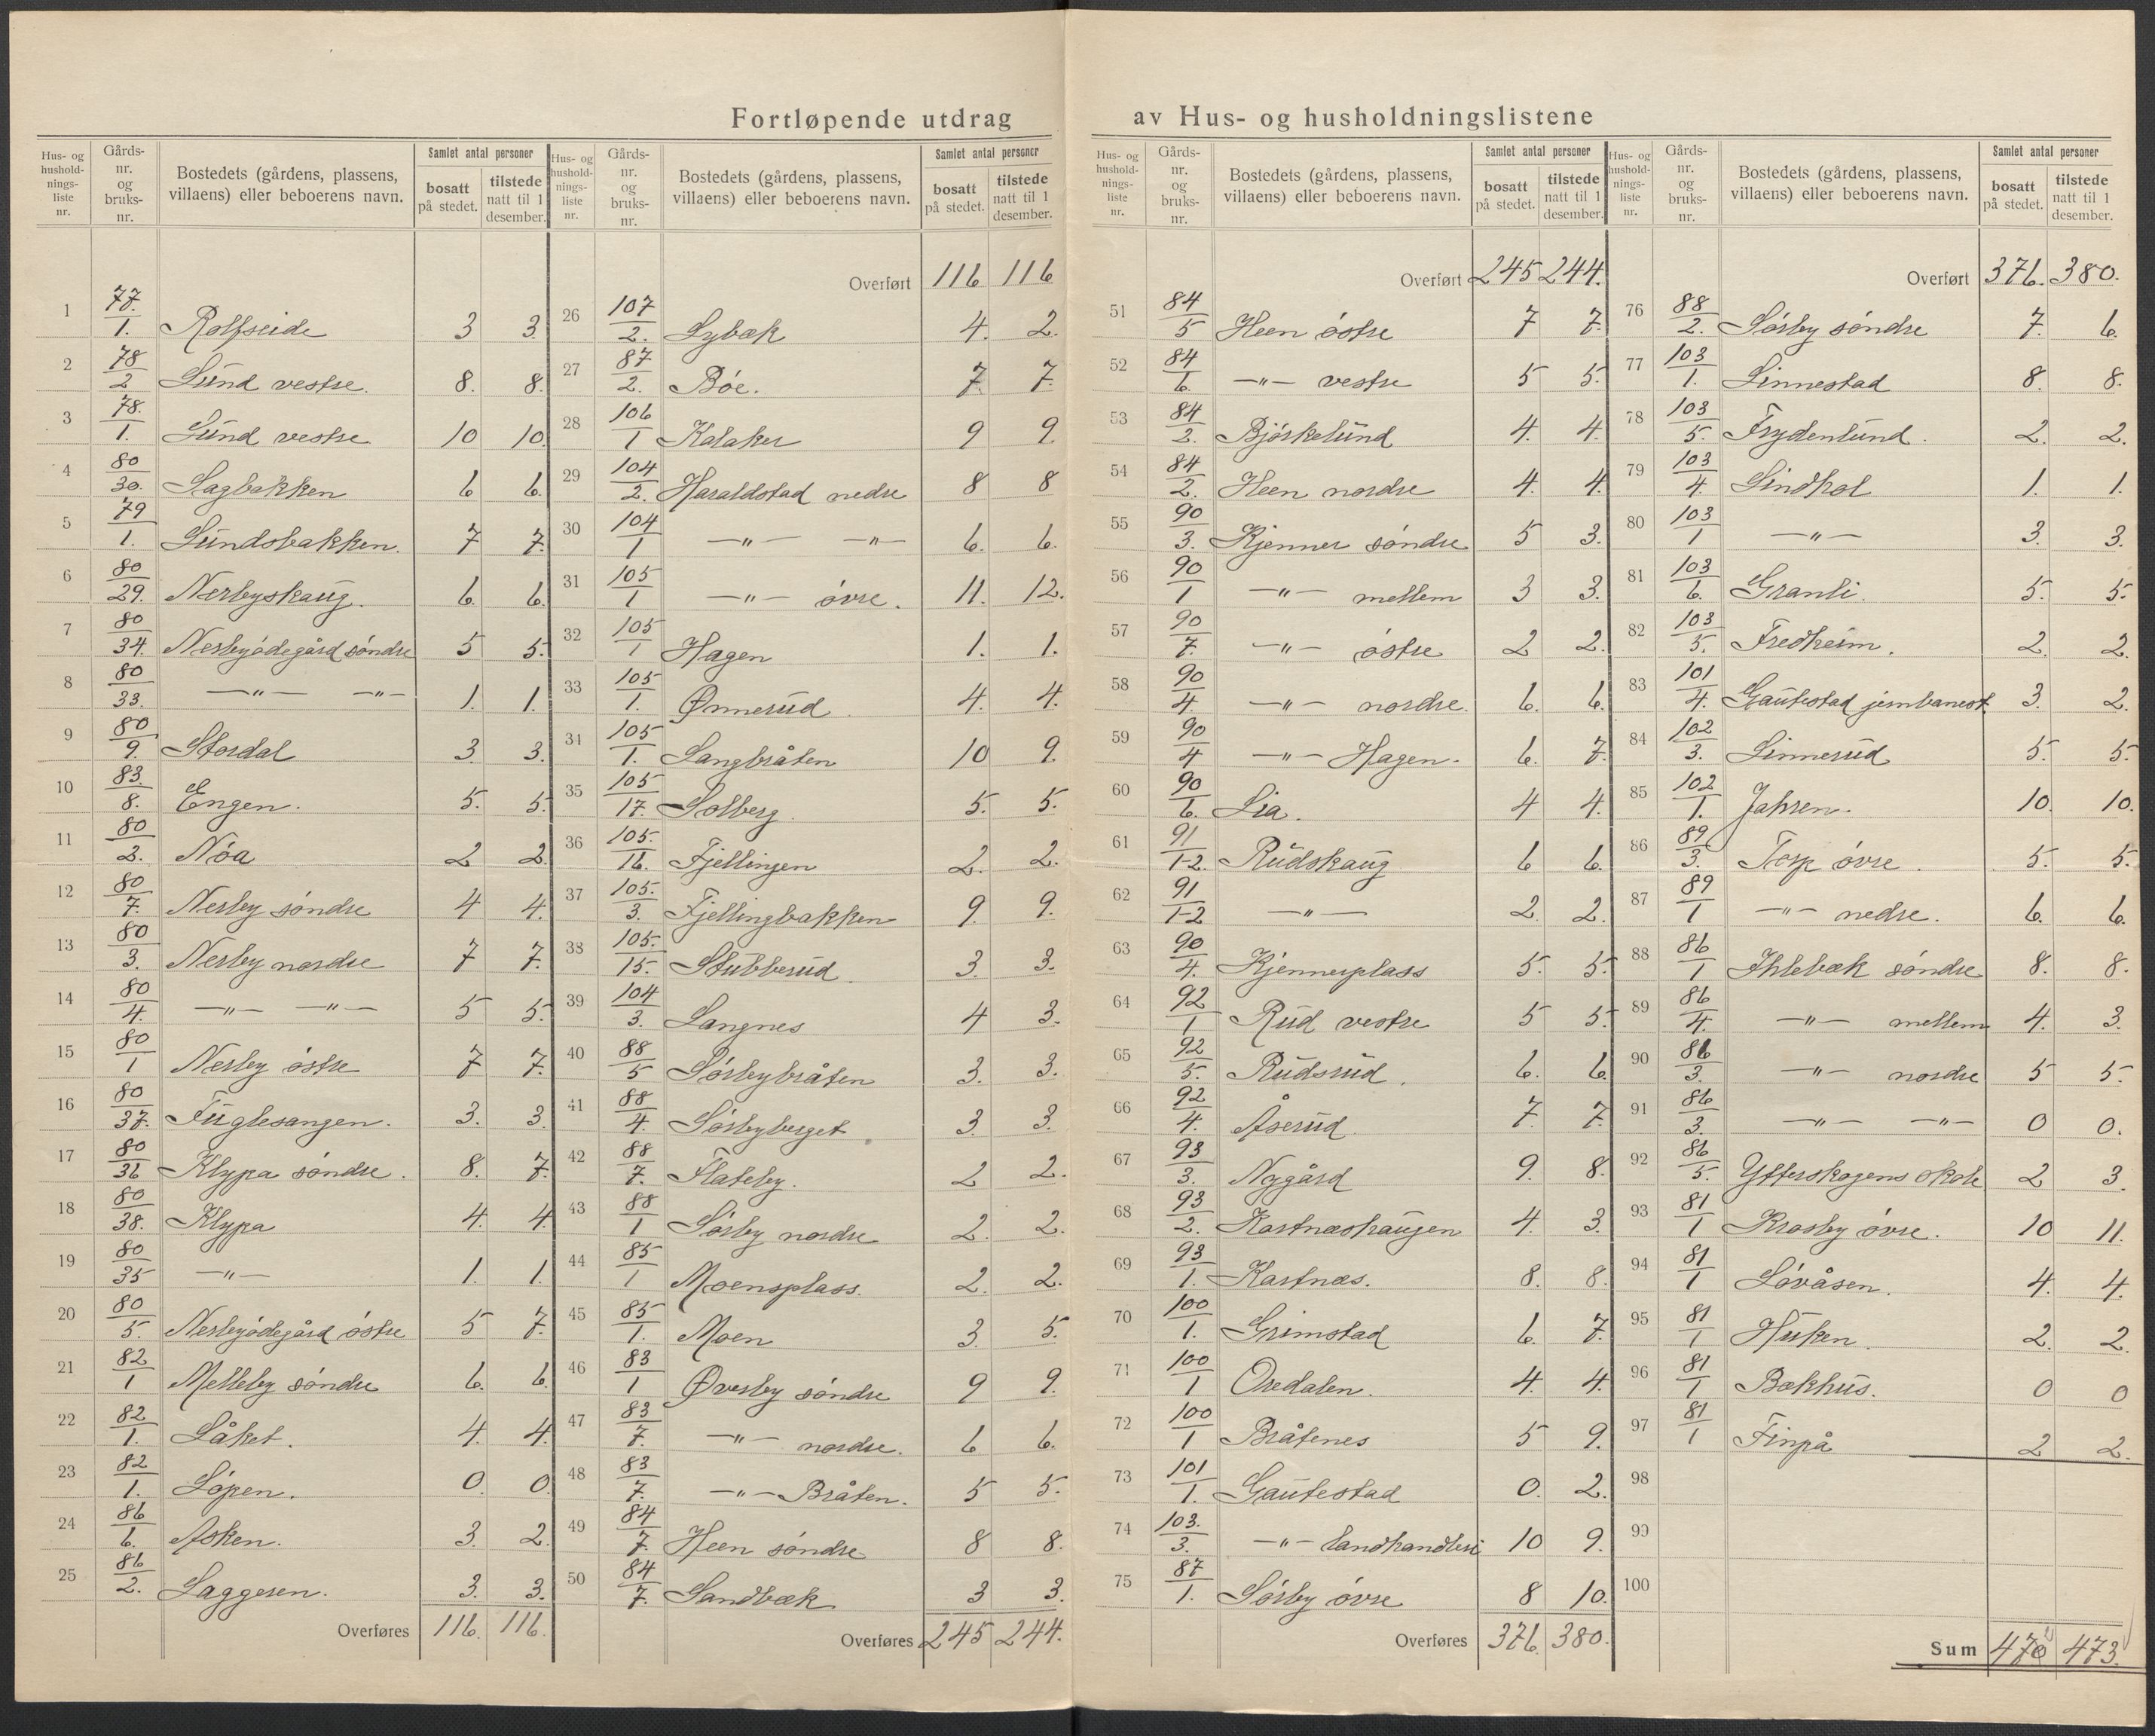 Fortløpende utdrag av Hus- og husholdningslistene
Hus- og hushold- nings- liste nr. | Gårds- nr. og bruks- nr. | Bostedets (gårdens, plassens, villaens) eller beboerens navn. | Samlet antal personer | bosatt på stedet. | tilstede natt til 1 desember.
1 77./1. Rolfseide 3 3.
2 78/2 Lund vestre. 8. 8.
3 78./1. Lund vestre 10 10.
4 80/30. Sagbakken 6 6.
5 79/1. Lundsbakken. 7 7.
6 80/29. Nerbyskaug. 6. 6.
7 80/34. Nerbyødegård søndre 5 5.
8 80/33. —„— —„— 1. 1.
9 80/9. Stordal 3. 3.
10 83./8. Engen. 5. 5.
11 80/2. Nøa 2 2.
12 80/7. Nerby søndre 4 4.
13 80/3. Nerby nordre 7 7.
14 80/4. —„— —„— 5 5.
15 80/1 Nerby østre 7 7.
16 80/37. Fuglesangen. 3. 3.
17 80/36 Klypa søndre. 8. 7.
18 80/38. Klypa 4. 4.
19 80/35 —„— 1. 1.
20 80/5. Nerbyødegård østre 5 7.
21 82/1 Melleby søndre 6. 6.
22 82/1. Låket. 4. 4.
23 82/1. Løpen. 0. 0.
24 86/6. Asken. 3. 2.
25 86/2. Laggeren. 3. 3.
Overføres 116. 116.
Hus- og hushold- nings- liste nr. | Gårds- nr. og bruks- nr. | Bostedets (gårdens, plassens, villaens) eller beboerens navn. | Samlet antal personer | bosatt på stedet. | tilstede natt til 1 desember.
Overført 116 116
26 107/2. Lybæk 4. 2.
27 87/2. Bøe. 7. 7.
28 106/1 Kalaker 9 9.
29 104/2. Haraldstad nedre 8 8
30 104/1 —„— —„— 6. 6.
31 105/1 —„— øvre. 11. 12.
32 105/1 Hagen 1. 1.
33 105/1. Ønnerud. 4. 4.
34 105/1. Langbråten 10 9.
35 105/17. Solberg. 5. 5.
36 105./16. Fjellingen 2. 2.
37 105./3. Fjellingbakken 9. 9.
38 105./15. Stubberud. 3. 3.
39 104/3. Langnes 4 3.
40 88/5 Sørbybråten 3. 3.
41 88/4. Sørbyberget 3 3.
42 88/7. Flateby. 2 2.
43 88/1 Sørby nordre 2. 2.
44 85/1 Moensplass. 2. 2.
45 85/1. Moen 3. 5.
46 83/1 Øvreby søndre 9 9.
47 83/7. —„— nordre. 6 6.
48 83/7. —„— Bråten. 5 5.
49 84/7. Heen søndre 8 8.
50 84/7. Sandbæk 3 3.
Overføres 245 244.
Hus- og hushold- nings- liste nr. | Gårds- nr. og bruks- nr. | Bostedets (gårdens, plassens, villaens) eller beboerens navn. | Samlet antal personer | bosatt på stedet. | tilstede natt til 1 desember.
Overført 245 244.
51 84/5 Heen østre 7 7.
52 84/6. —„— vestre 5 5.
53 84/2. Bjørkelund 4. 4.
54 84/2. Heen nordre 4. 4.
55 90/3. Kjenner søndre 5 3.
56 90/1 —„— mellem 3 3.
57 90/7. —„— østre 2 2.
58 90/4. —„— nordre. 6. 6.
59 90/4 —„— Hagen. 6. 7.
60 90/6. Lia. 4 4.
61 91/1-2. Rudskaug 6 6.
62 91/1-2 —„— 2. 2.
63 90/4. Kjennerplass 5. 5.
64 92/1 Rud vestre 5 5.
65 92/5. Rudsrud. 6. 6.
66 92/4. Åserud. 7. 7.
67 93/3. Nygård 9. 8.
68 93/2. Kastnæshaugen 4. 3.
69 93/1. Kastnæs. 8. 8.
70 100/1. Grimstad 6. 7.
71 100/1 Oredalen. 4. 4.
72 100/1 Bråtenes 5 9.
73 101/1. Gautestad 0. 2.
74 103./3. —„— landhandleri 10 9.
75 87/1. Sørby øvre 8 10.
Overføres 376 380.
Hus- og hushold- nings- liste nr. | Gårds- nr. og bruks- nr. | Bostedets (gårdens, plassens, villaens) eller beboerens navn. | Samlet antal personer | bosatt på stedet. | tilstede natt til 1 desember.
Overført 376. 380.
76 88/2. Sørby søndre 7. 6.
77 103/1. Linnestad 8. 8.
78 103/5. Frydenlund. 2. 2.
79 103/4. Lindhol 1. 1.
80 103/1 —„— 3. 3.
81 103/6. Granli. 5. 5.
82 103/5. Fredheim. 2. 2.
83 101/4. Gautestad jernbanest. 3. 2.
84 102/3. Linnerud 5. 5.
85 102/1. Jahren. 10. 10.
86 89/3. Torp øvre. 5. 5.
87 89/1 —„— nedre. 6. 6.
88 86/1 Ihlebæk søndre 8. 8.
89 86/4. —„— mellem 4. 3.
90 86/3. —„— nordre 5 5.
91 86/3. —„— —„— 0 0.
92 86/5. Ytterskogens skole 2 3.
93 81/1 Krosby øvre. 10 11.
94 81/1 Løvåsen. 4. 4.
95 81/1 Huken. 2. 2.
96 81/1 Bakhus. 0 0
97 81/1 Finpå 2 2.
98
99
100
Sum 470 473.